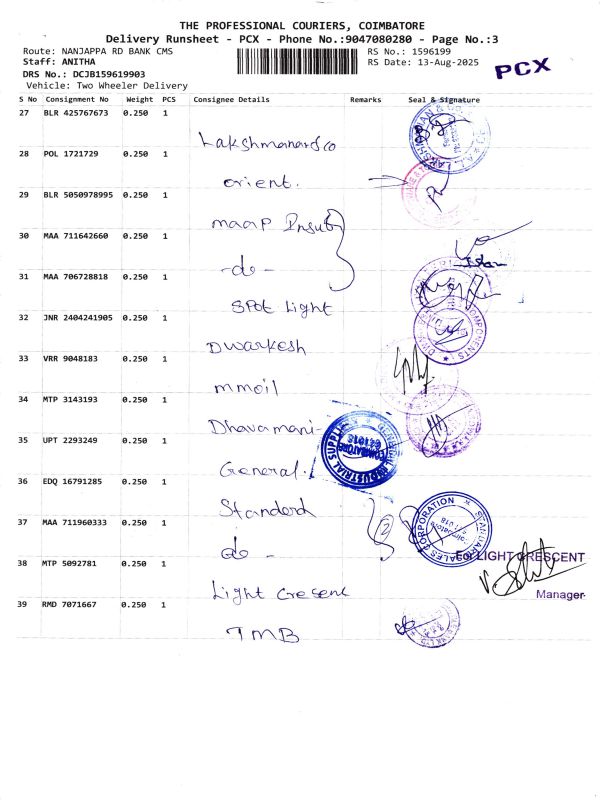 THE PROFESSIONAL COURIERS, COIMBATORE
Delivery Runsheet - PCX - Phone No.:9047080280 - Page No.:3
Route: NANJAPPA RD BANK CMS
RS No.: 1596199
Staff: ANITHA
RS Date: 13-Aug-2025
PCX
DRS No.: DCJB159619903
Vehicle: Two Wheeler Delivery
S No Consignment No Weight PCS Consignee Details Remarks Seal & Signature
27 BLR 425767673 0.250 1
Lakshmanard co
28 POL 1721729 0.250 1
orient.
29 BLR 5050978995 0.250 1
maap Insu
30 MAA 711642660 0.250 1
-do-
31 MAA 706728818 0.250 1
Spot Light
32 JNR 2404241905 0.250 1
Dwarkesh
33 VRR 9048183 0.250 1
mmoil
34 MTP 3143193 0.250 1
Dhavamani-
35 UPT 2293249 0.250 1
INDUSTRIAL SUPPLI
COIMBATORE
641018
General.
36 EDQ 16791285 0.250 1
Standerd
37 MAA 711960333 0.250 1
2
STANDARD SALES CORPORATION
do -
For LIGHT CRESCENT
38 MTP 5092781 0.250 1
Light Cresent
Manager
39 RMD 7071667 0.250 1
TMB